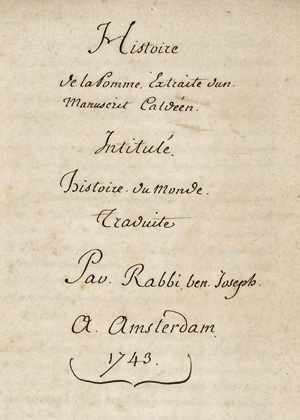 Histoire
de la Pomme, Extraite d'un.
Manuscrit Caldéen.
Intitulé,
histoire. du Monde.
Traduite
Par. Rabbi, ben. Joseph.
A. Amsterdam
1743.